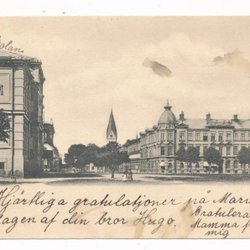 olan
Hjärtliga gratulationer på Maria
dagen af din bror Hugo.
Gratulera
Mamma,
mig